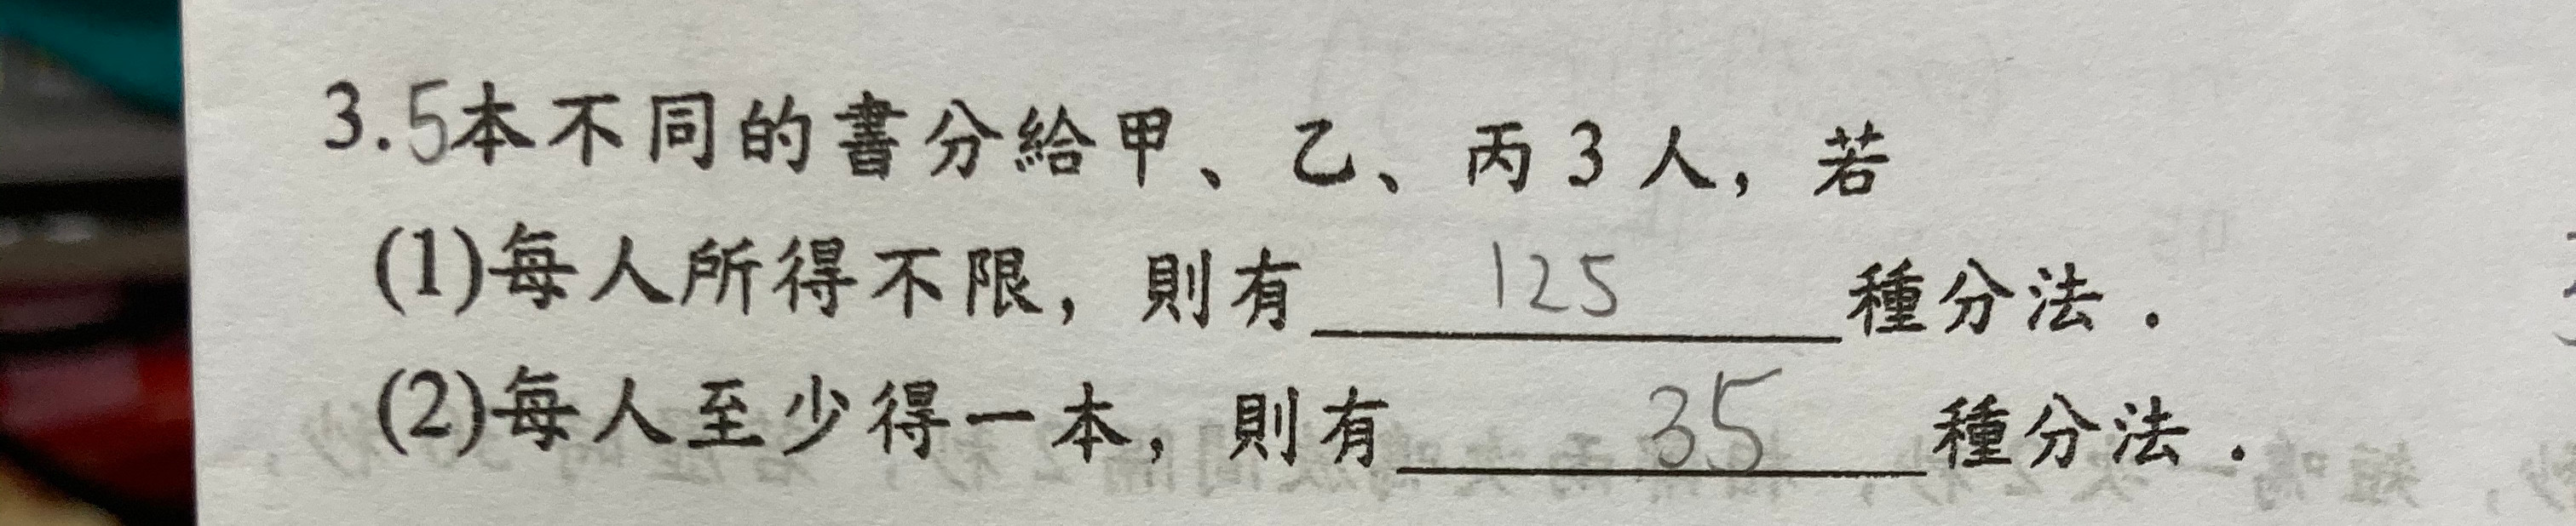 3.5本不同的書分給甲、乙、丙3人，若
(1)每人所得不限，則有 125 種分法．
(2)每人至少得一本，則有 35 種分法．